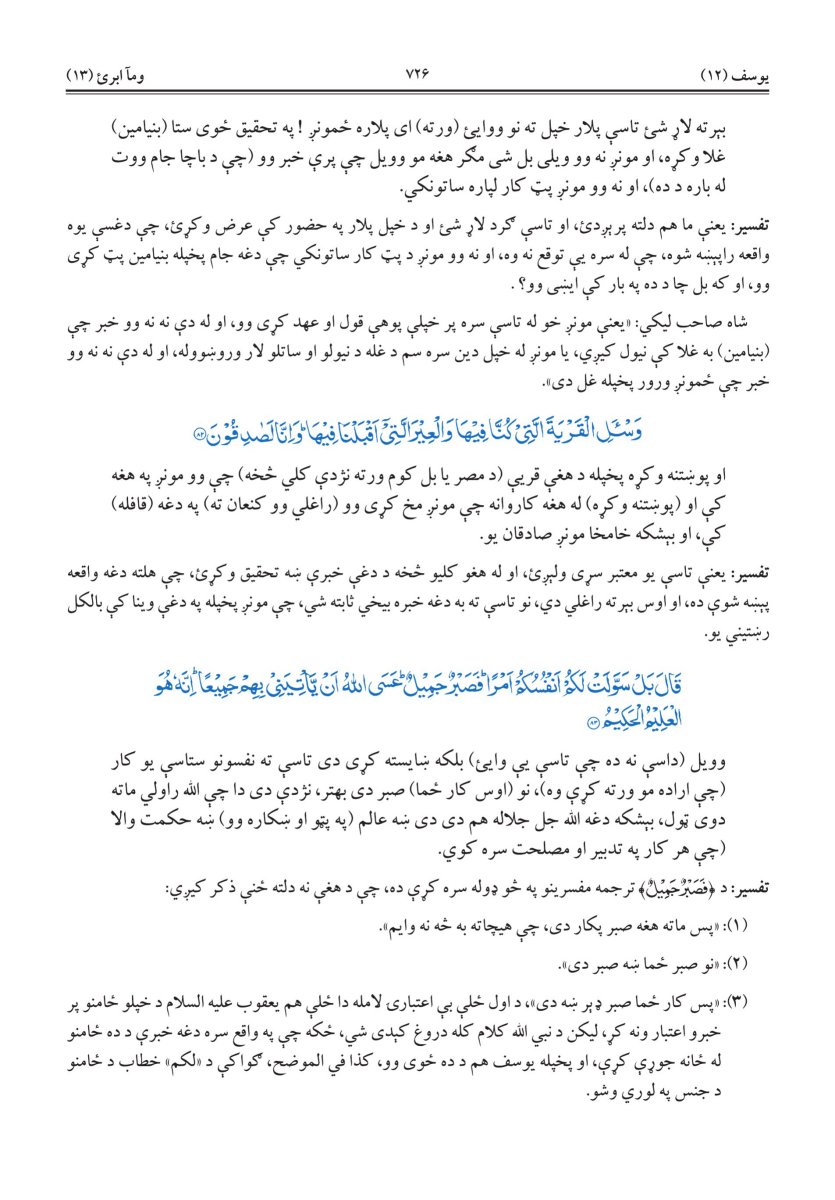 یوسف (۱۲) ۷۲۶ ومآ ابرئ (۱۳)
بېرته لاړ شئ تاسې پلار خپل ته نو ووایئ (ورته) ای پلاره ځمونږ ! په تحقیق ځوی ستا (بنیامین)
غلا وکړه، او مونږ نه وو ویلی بل شی مګر هغه مو وویل چې پرې خبر وو (چې د باچا جام ووت
له باره د ده)، او نه وو مونږ پټ کار لپاره ساتونکي.
تفسیر: یعنې ما هم دلته پرېږدئ، او تاسې ګرد لاړ شئ او د خپل پلار په حضور کې عرض وکړئ، چې دغسې یوه
واقعه راپېښه شوه، چې له سره یې توقع نه وه، او نه وو مونږ د پټ کار ساتونکي چې دغه جام پخپله بنیامین پټ کړی
وو، او که بل چا د ده په بار کې ایښی وو؟ .
شاه صاحب لیکي: «یعنې مونږ خو له تاسې سره پر خپلې پوهې قول او عهد کړی وو، او له دې نه نه وو خبر چې
(بنیامین) به غلا کې نیول کیږي، یا مونږ له خپل دین سره سم د غله د نیولو او ساتلو لار وروښووله، او له دې نه نه وو
خبر چې ځمونږ ورور پخپله غل دی».
وَسْـَٔلِ الْقَرْيَةَ الَّتِىْ كُنَّا فِيْهَا وَالْعِيْرَ الَّتِىْٓ اَقْبَلْنَا فِيْهَا ۭ وَاِنَّا لَصٰدِقُوْنَ ۝۸۲
او پوښتنه وکړه پخپله د هغې قریې (د مصر یا بل کوم ورته نژدې کلي څخه) چې وو مونږ په هغه
کې او (پوښتنه وکړه) له هغه کاروانه چې مونږ مخ کړی وو (راغلي وو کنعان ته) په دغه (قافله)
کې، او بېشکه خامخا مونږ صادقان یو.
تفسیر: یعنې تاسې یو معتبر سړی ولېږئ، او له هغو کلیو څخه د دغې خبرې ښه تحقیق وکړئ، چې هلته دغه واقعه
پېښه شوې ده، او اوس بېرته راغلي دي، نو تاسې ته به دغه خبره بیخي ثابته شي، چې مونږ پخپله په دغې وینا کې بالکل
رښتیني یو.
قَالَ بَلْ سَوَّلَتْ لَكُمْ اَنْفُسُكُمْ اَمْرًا ۭ فَصَبْرٌ جَمِيْلٌ ۭ عَسَى اللّٰهُ اَنْ يَّاْتِيَنِىْ بِهِمْ جَمِيْعًا ۭ اِنَّهٗ هُوَ
الْعَلِيْمُ الْحَكِيْمُ ۝۸۳
وویل (داسې نه ده چې تاسې یې وایئ) بلکه ښایسته کړی دی تاسې ته نفسونو ستاسې یو کار
(چې اراده مو ورته کړې وه)، نو (اوس کار ځما) صبر دی بهتر، نژدې دی دا چې الله راولي ماته
دوی ټول، بېشکه دغه الله جل جلاله هم دی دی ښه عالم (په پټو او ښکاره وو) ښه حکمت والا
(چې هر کار په تدبیر او مصلحت سره کوي.
تفسیر: د ﴿فَصَبْرٌ جَمِيْلٌ﴾ ترجمه مفسرینو په څو ډوله سره کړې ده، چې د هغې نه دلته ځنې ذکر کیږي:
(۱): «پس ماته هغه صبر پکار دی، چې هیچاته به څه نه وایم».
(۲): «نو صبر ځما ښه صبر دی».
(۳): «پس کار ځما صبر ډېر ښه دی»، د اول ځلې بې اعتبارۍ لامله دا ځلې هم یعقوب علیه السلام د خپلو ځامنو پر
خبرو اعتبار ونه کړ، لیکن د نبي الله کلام کله دروغ کېدی شي، ځکه چې په واقع سره دغه خبرې د ده ځامنو
له ځانه جوړې کړې، او پخپله یوسف هم د ده ځوی وو، کذا في الموضح، ګواکې د «لکم» خطاب د ځامنو
د جنس په لوري وشو.